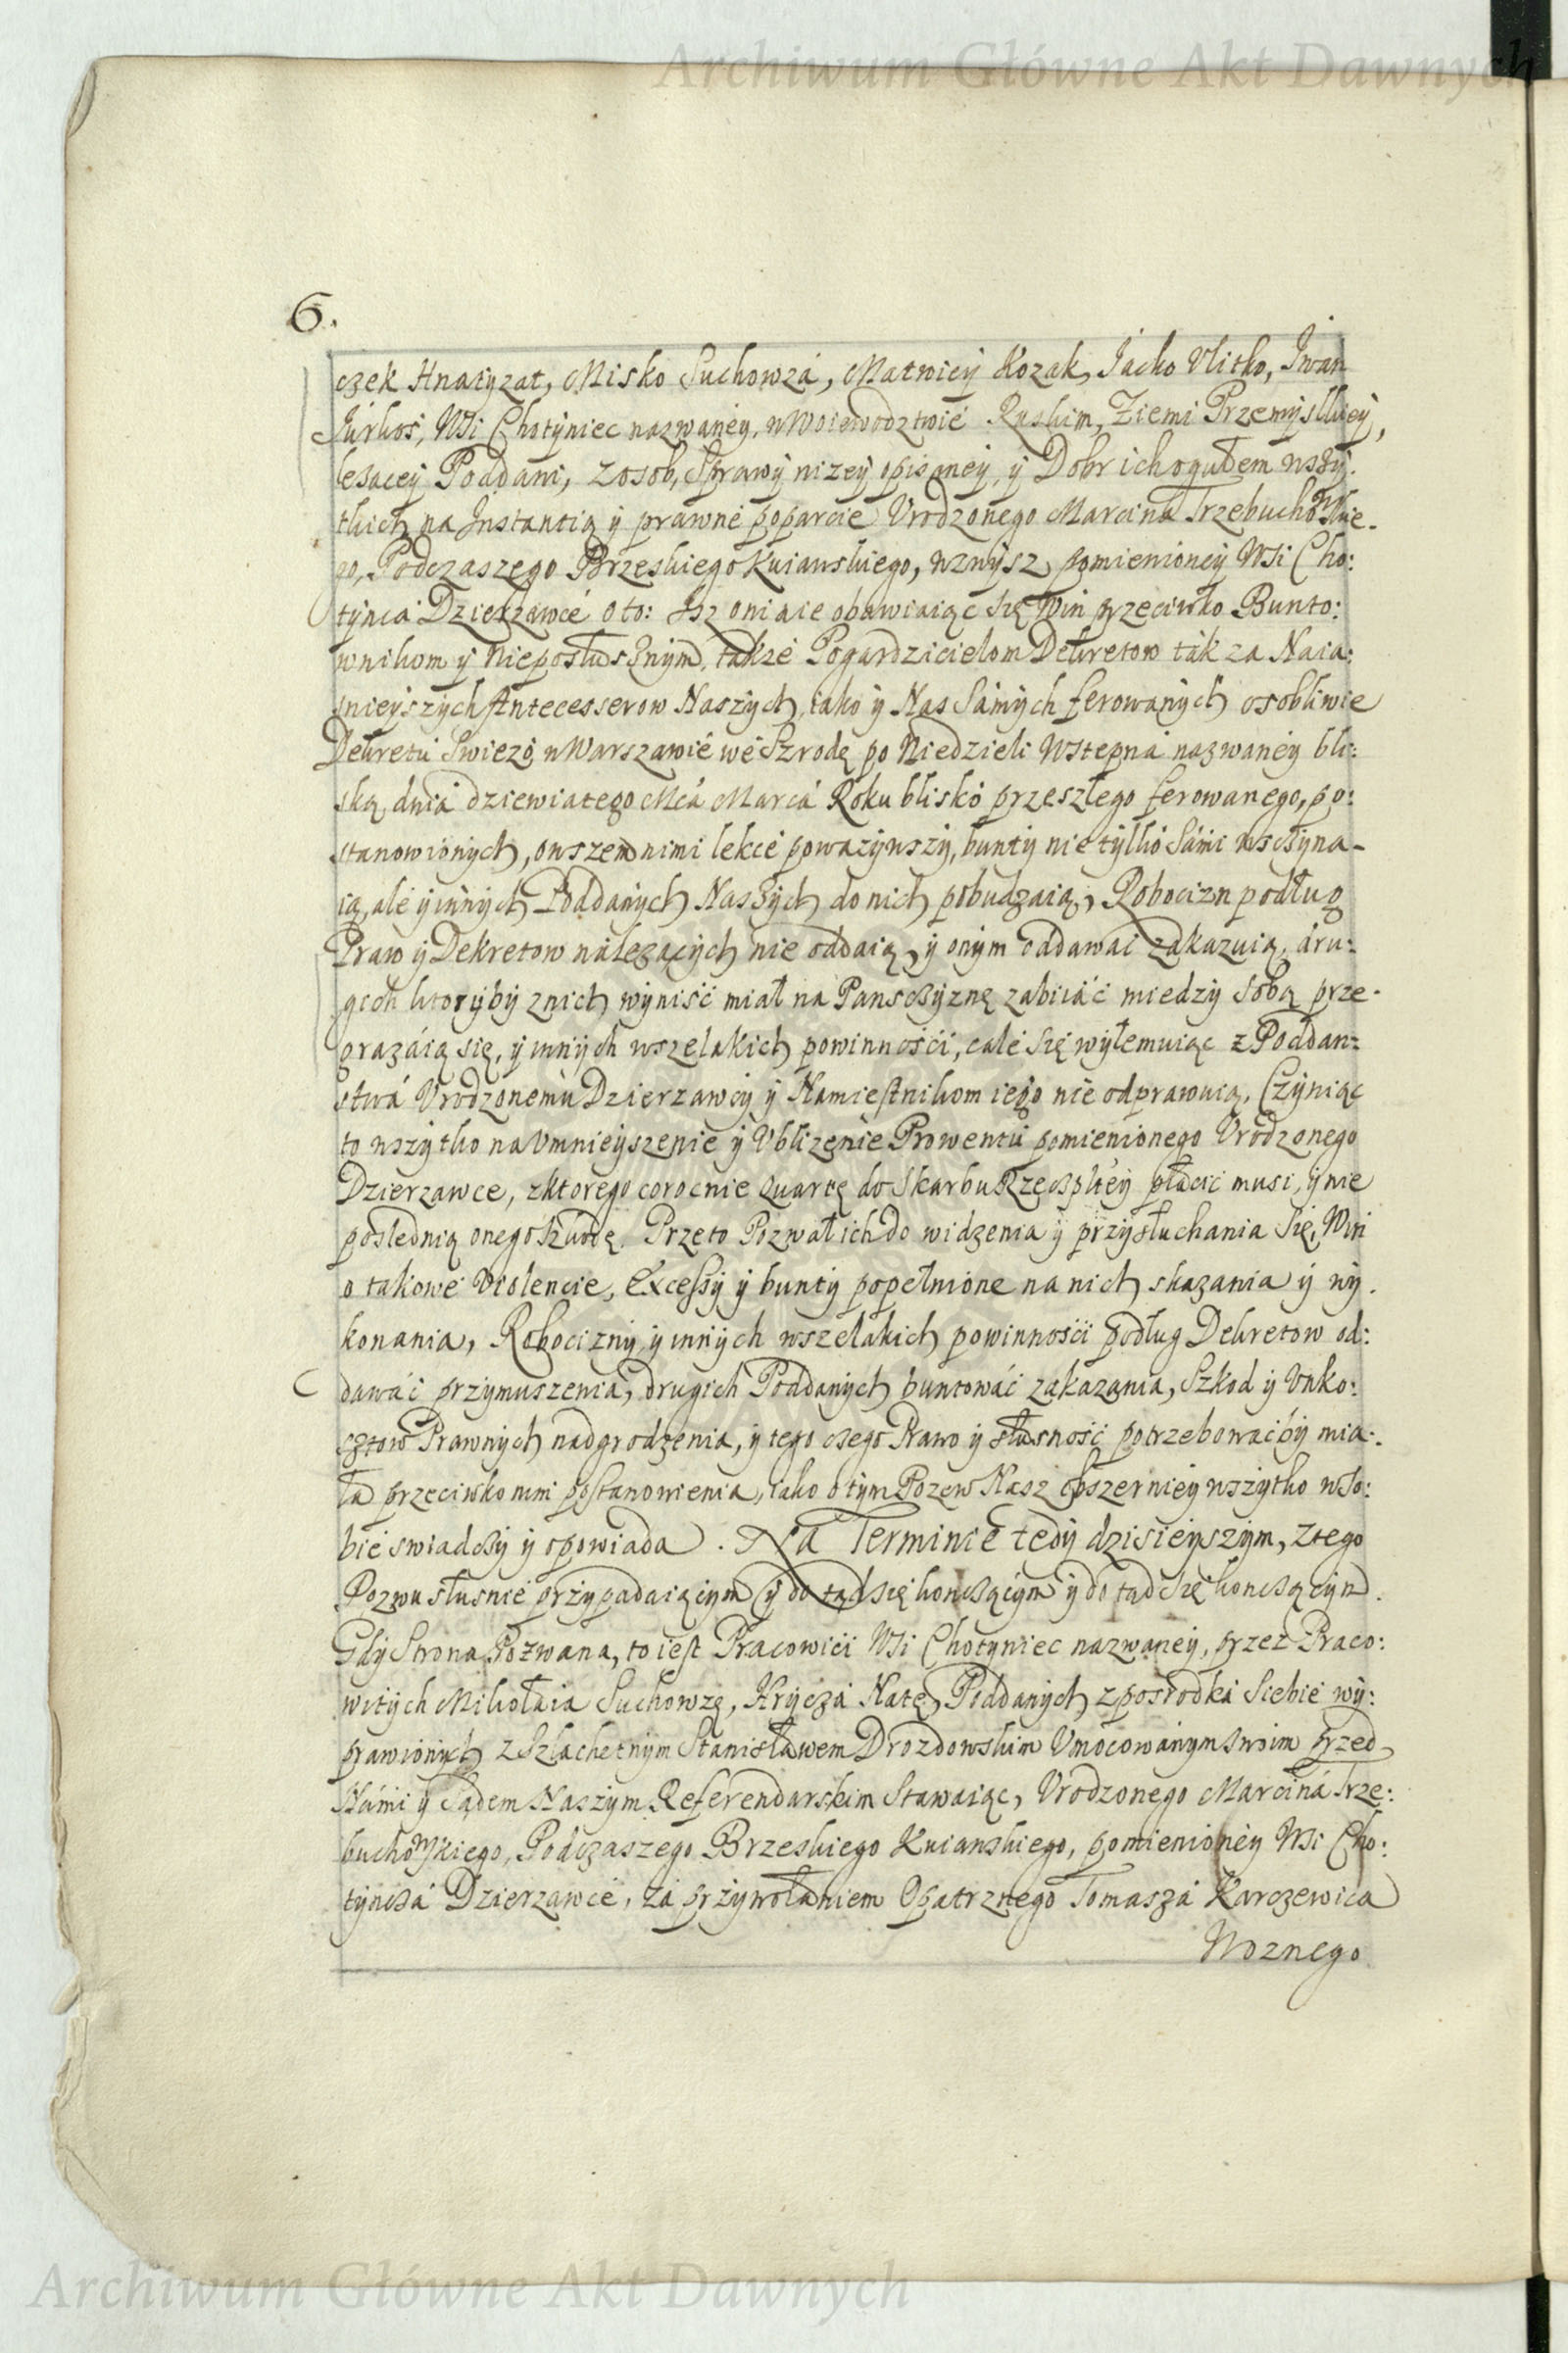 Archiwum Główne Akt Dawnych
6.
czek Hnatyzat, Misko Suchowzá, Matwiey Kozak, Jacko Vlitko, Jwan
Jurkos, Wsi Chotyniec nazwaney, w Woiewodztwie Ruskim, Ziemi Przemyslkiey,
lesacey Poddani, z osob, Sprawy nizey opisaney, y Dobr ich ogułem wszy:
tkich na Jnstantią y prawne poparcie Vrodzonego Marcina Trzebuchowskie-
go, Podczaszego Brzeskiego Kuiawskiego, wzwysz pomienioney Wsi Cho:
tynca Dzierzawcé o to: Jsz oni nie obawiaiąc się Win przeciwko Bunto:
wnikom y Nieposłusznym, takze Pogardzicielom Dekretow tak za Naia:
snieyszych Antecesserow Naszych, iako y Nas Samych ferowanych osobliwie
Dekretu Swiezo w Warszawie we Szrodę po Niedzieli Wstepna nazwaney bli:
ską dnia dziewiatego Mca Marca Roku blisko przeszłego ferowanego, po:
stanowionych, owszem nimi lekce powazywszy, bunty nie tylko Sami wsczyna-
ią, ale y innych Poddanych Naszych do nich pobudzaią, Robocizn podług
Praw y Dekretow nalezących nie oddaią, y onym oddawać zakazuią, dru:
gich ktoryby z nich wyniść miał na Pansczyznę zabiiáć miedzy Sobą prze-
grazáią się, y innych wszelakich powinności, cale się wyłemuiąc z Poddan:
stwá Vrodzonemu Dzierzawcy y Namiestnikom iego nie odprawuią. Czyniąc
to wszytko na Vmnieyszenie y Vblizenie Prowentu pomienionego Vrodzonego
Dzierzawce, z ktorego corocnie Quartę do Skarbu Rzeczpltey płacić musi, y nie
poslednią onego Szkodę. Przeto Pozwał ich do widzenia y przysłuchania Się, Win
o takowe Violencie, Excessy y bunty popełnione na nich skazania y wy.
konania, Robocizny, y innych wszelakich powinności podług Dekretow od:
dawać przymuszenia, drugich Poddanych buntowáć zakazania, Szkod y Vnko:
sztow Prawnych nadgrodzenia, y tego czego Prawo y słusność potrzebować by mia:
ła przeciwko nim postanowienia, iako o tym Pozew Nasz obszerniey wszytko w So:
bie swiadczy y opowiada. Na Terminie tedy dzisieyszym, z tego
Pozwu słusnie przypadaiącym y do tąd się konczącym y do tad się konczącym.
Gdy Strona Pozwana, to iest Pracowici Wsi Chotyniec nazwaney, przez Praco:
witych Mikołaia Suchowzę, Hryczá Natę, Poddanych z posrodka Siebie wy:
prawionych z Szlachetnym Stanisławem Drozdowskim Vmocowanym swoim przed
Námi y Sądem Naszym Referendarskim Stawaiąc, Vrodzonego Marciná Trze:
buchowskiego, Podczaszego Brzeskiego Kuiawskiego, pomienioney Wsi Cho:
tynczá Dzierzawcé, za przywołaniem Opatrznego Tomaszá Karczewica
Woznego
Archiwum Główne Akt Dawnych